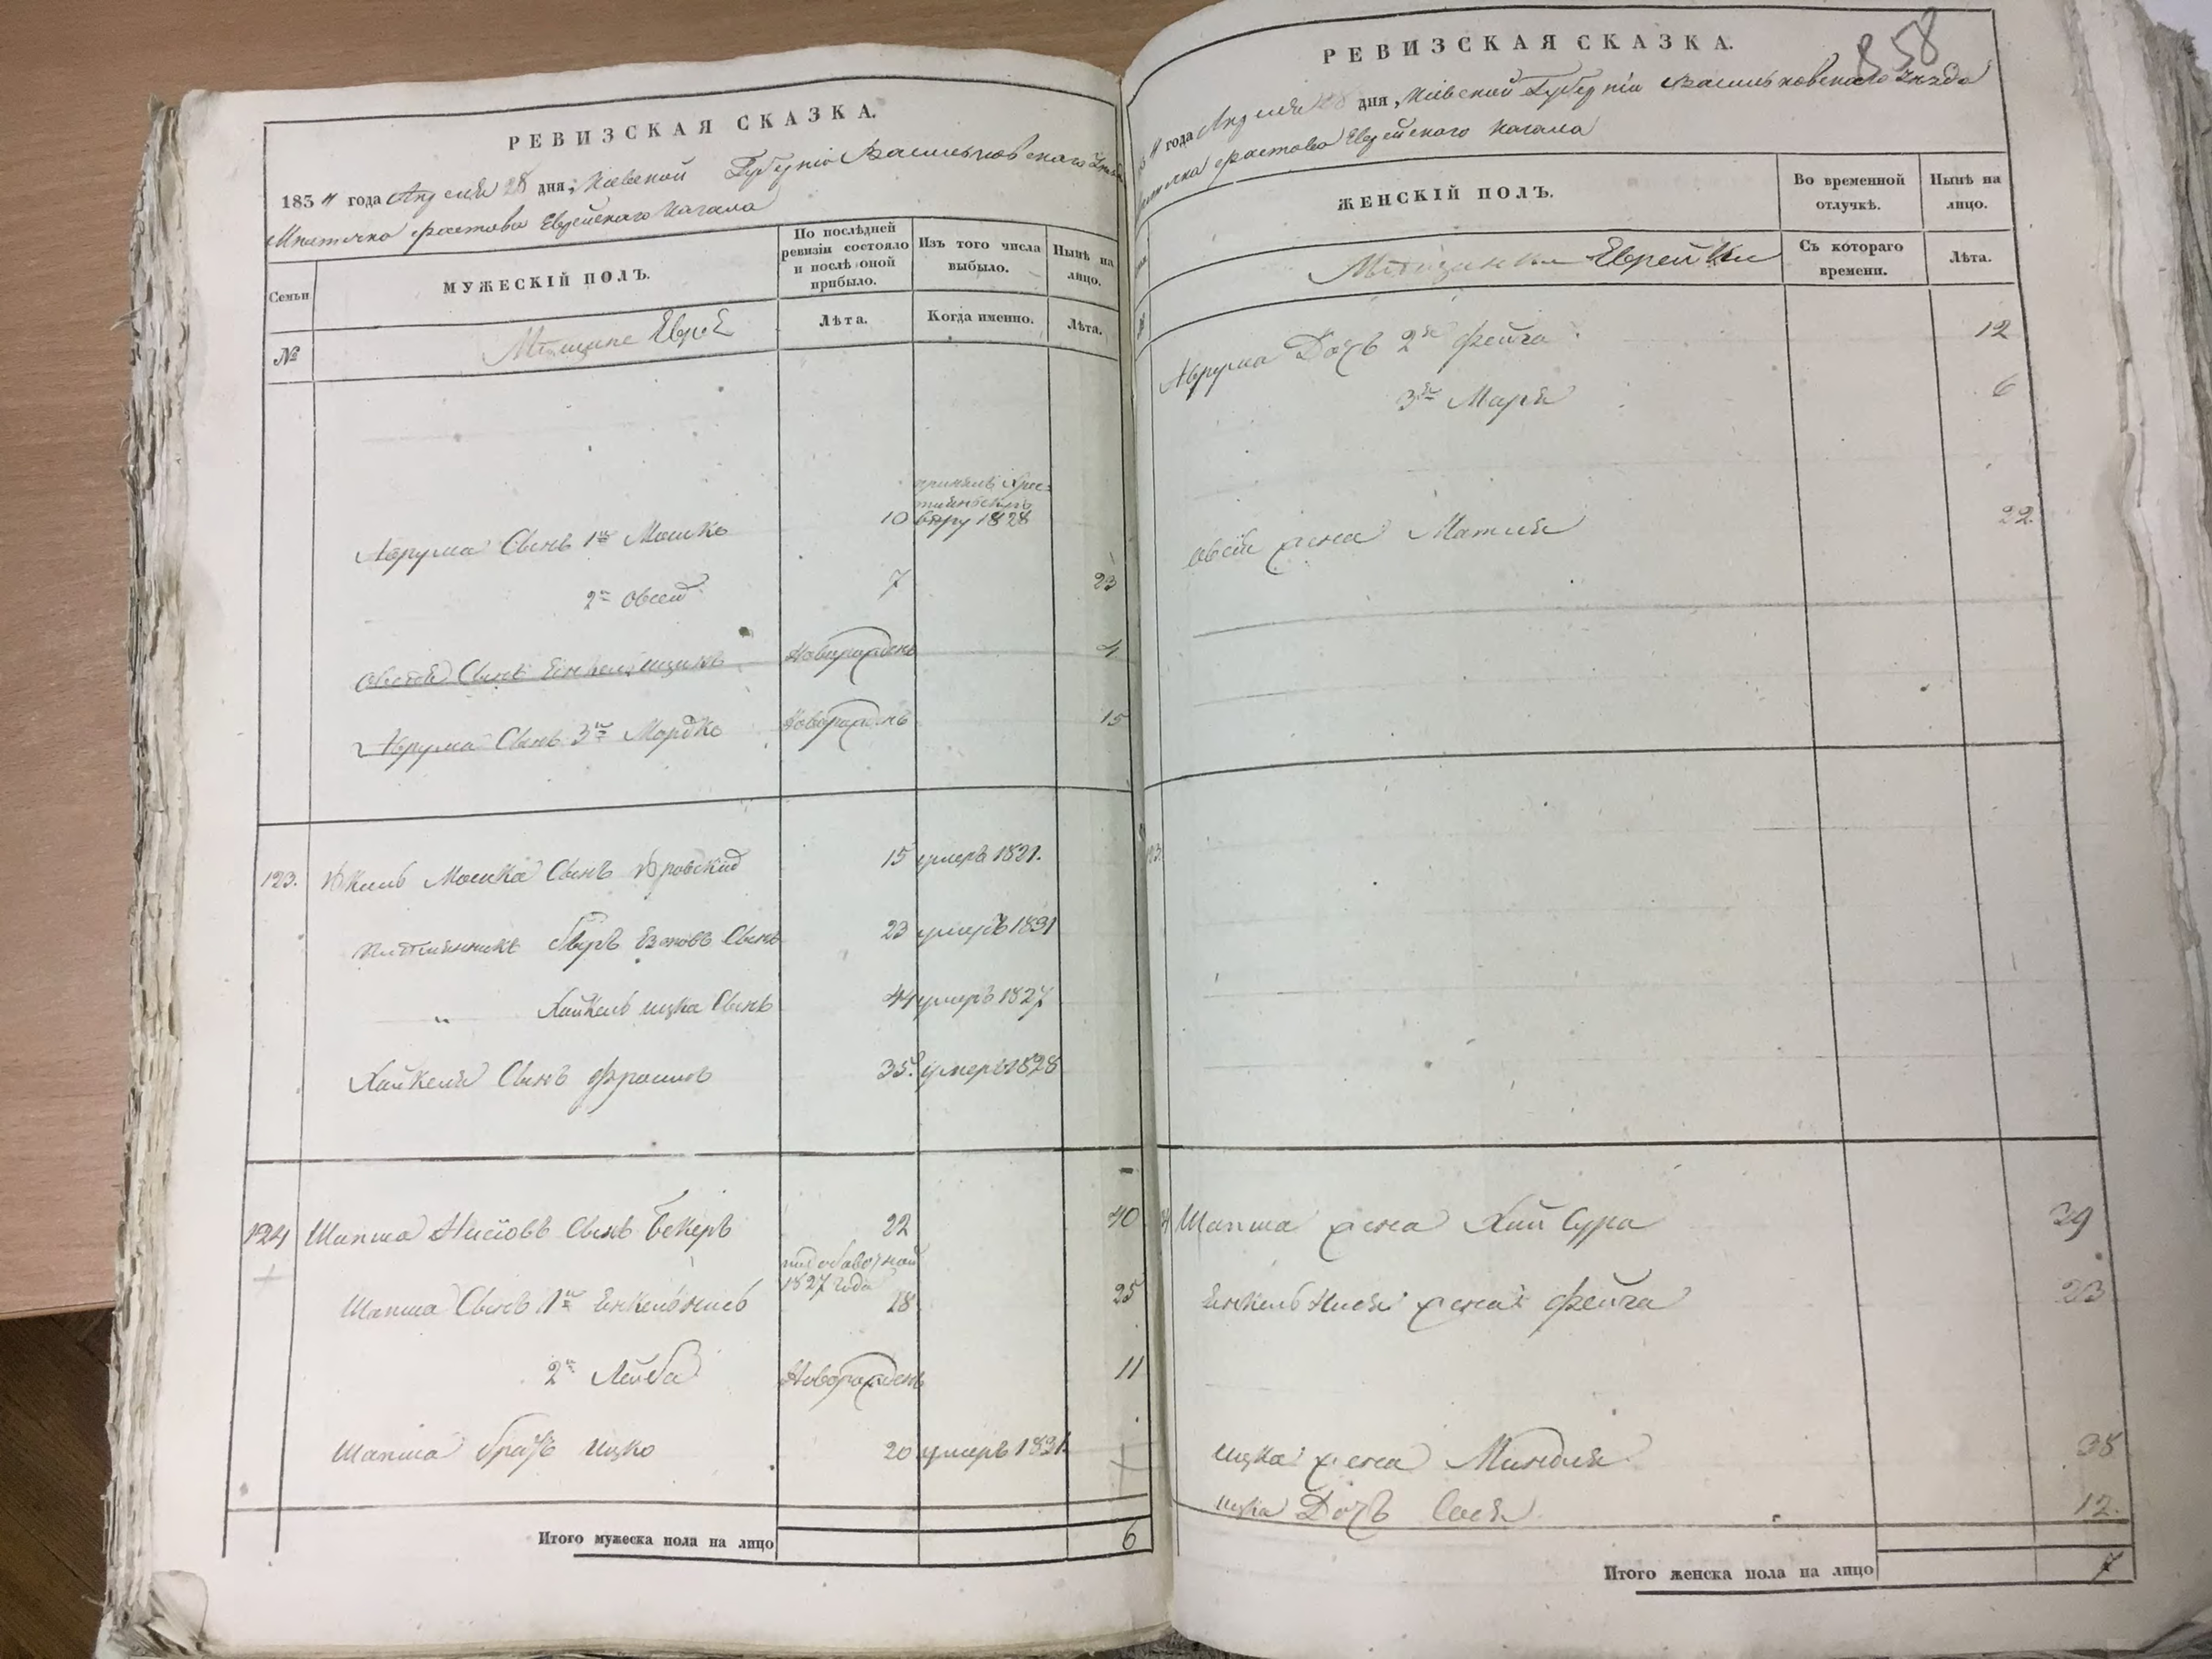 РЕВИЗСКАЯ СКАЗКА.
1834 года Апреля 28 дня, Киевской Губернiи Васильковского
Местечка Фастова Еврейского Кагала
Семьи
МУЖЕСКIЙ ПОЛЪ.
По последней ревизiи состояло и послѣ оной прибыло.
Изъ того числа выбыло.
Нынѣ на лицо.
№
Мѣщане Евреи
Лѣта.
Когда именно.
Лѣта.
принялъ Хрис=
тиянскую
Аврума Сынъ 1й Мошко 10 вѣру 1828
2й Овсей 7 23
Овсея Сынъ Янкель Ицикъ Новорожденъ 4
Аврума Сынъ 3й Мордко Новорожденъ 15
123. Мошка Сынъ 15 умеръ 1821.
Сынъ 23 умеръ 1831
" Хайкель Ицка Сынъ 44 умеръ 1827
Хайкеля Сынъ Фроимъ 35 умеръ 1828
124 Шапша Сынъ Бекеръ 22 40
1827 года
Шапша Сынъ 1й Енкель 18 25
2й Лейба Новорожденъ 11
Шапша братъ Ицко 20 умеръ 1831
Итого мужеска пола на лицо 6
858
РЕВИЗСКАЯ СКАЗКА.
4 года Апреля 28 дня, Киевской Губернiи Васильковского уезда
Фастова Еврейского Кагала
ЖЕНСКIЙ ПОЛЪ.
Во временной отлучкѣ.
Нынѣ на лицо.
Мѣщанки Еврейки
Съ котораго времени.
Лѣта.
Аврума Дочь 2я Фейга 12
3я Маря 6
Овсiя жена Матля 22
123
Шапша жена Хая Сура 39
Енкель Нися жена Фейга 23
Ицка жена Миндля 38
Ицка Дочь Сося 12.
Итого женска пола на лицо 7